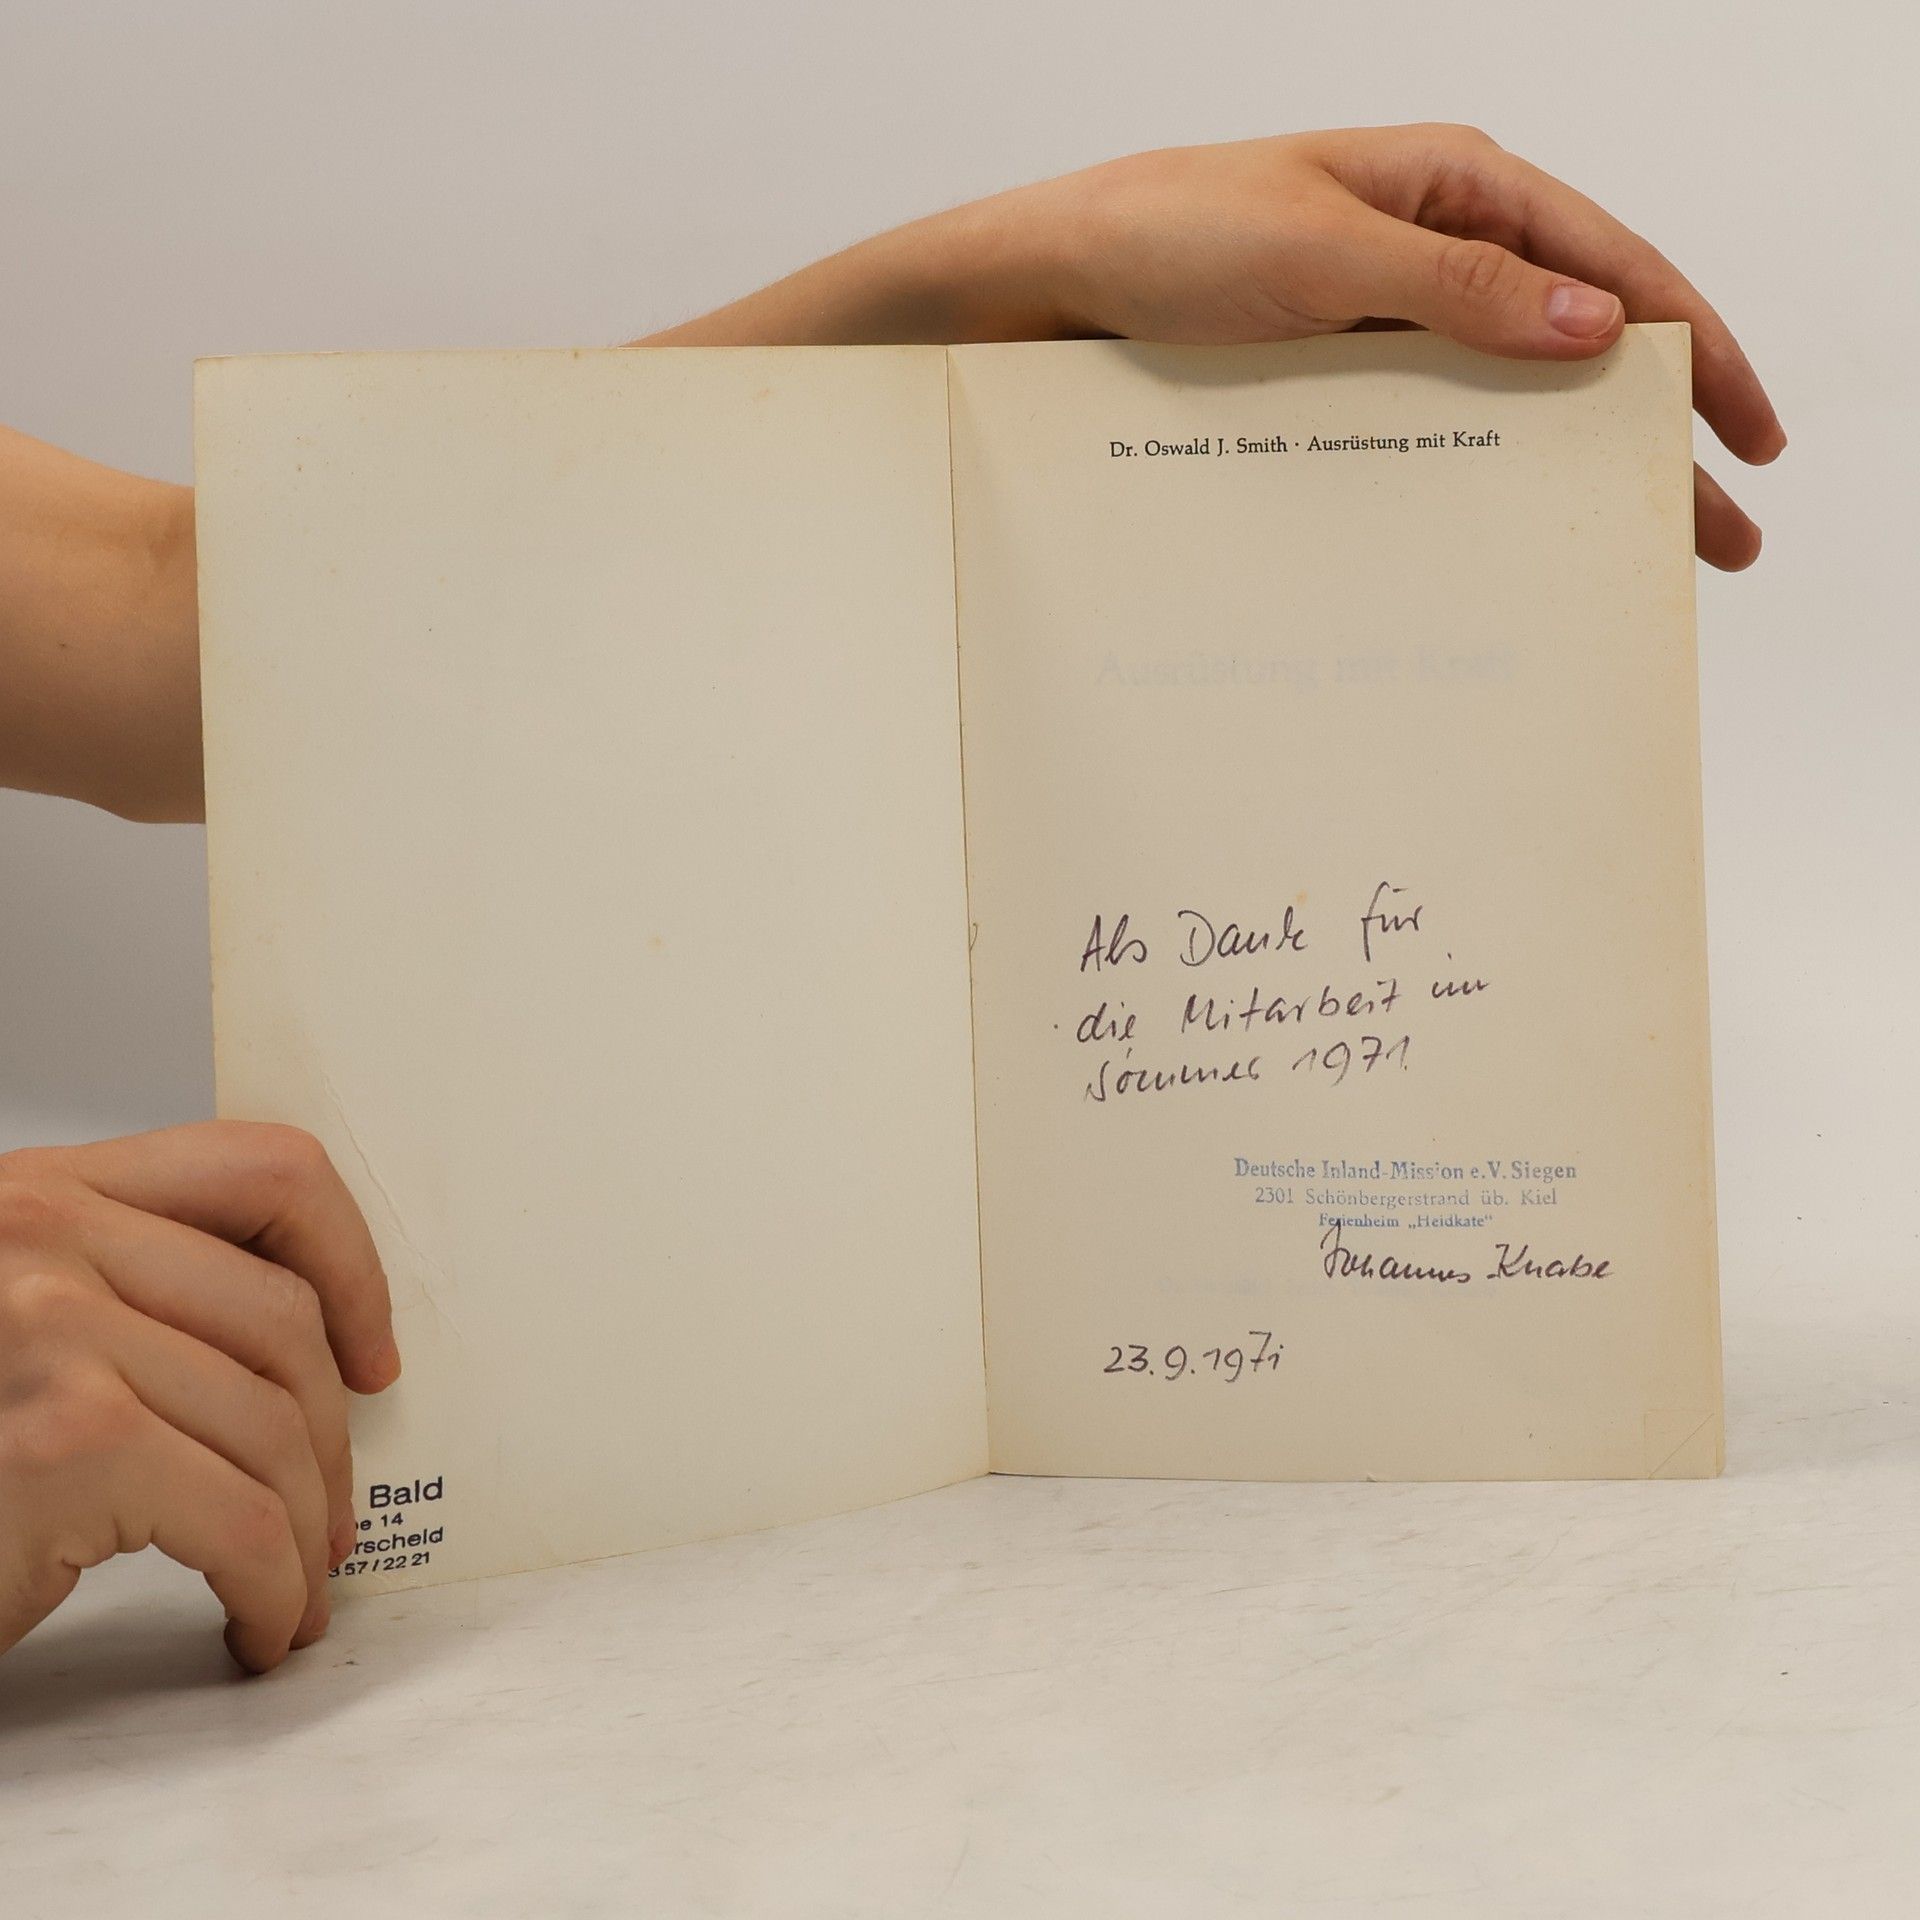 Dr. Oswald J. Smith · Ausrüstung mit Kraft
Ausrüstung mit Kraft
Als Dank für
die Mitarbeit im
Sommer 1971.
Deutsche Inland-Mission e.V. Siegen
2301 Schönbergerstrand üb. Kiel
Ferienheim „Heidkate“
Johannes Knabe
23.9.1971
Bald
e 14
rscheid
57/22 21